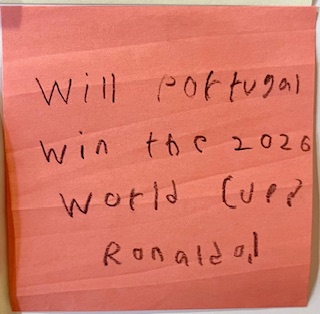 Will Portugal
win the 2026
World Cup?
Ronaldo!